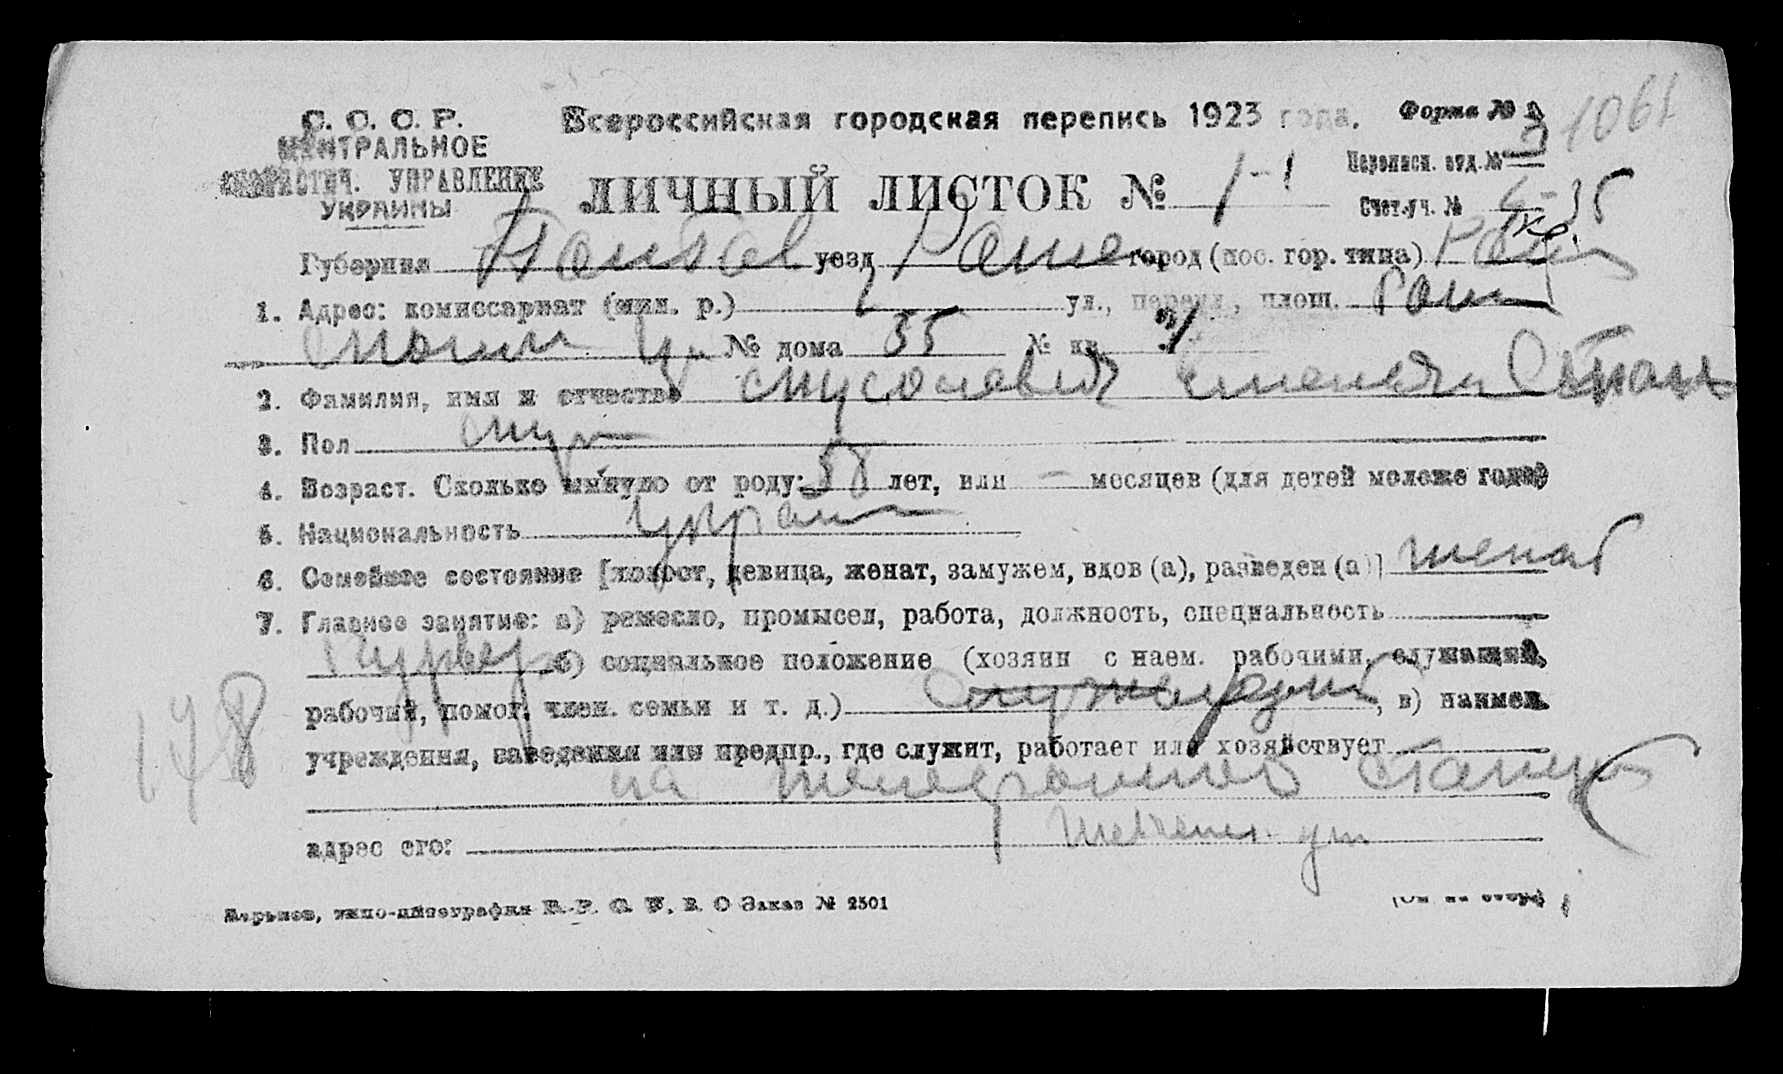 С. С. С. Р.
ЦЕНТРАЛЬНОЕ
СТАТИСТИЧ. УПРАВЛЕНИЕ
УКРАИНЫ
Всероссийская городская перепись 1923 года.
Форма № 2
1061
ЛИЧНЫЙ ЛИСТОК № 1-1
Переписн. отд. № 3
Счет.уч. № 35
Губерния Полтав уезд Роме город (пос. гор. типа)
1. Адрес: комиссариат (мил. р.) ул., переул., площ.
№ дома 35 № кв. 1
2. Фамилия, имя и отчество
3. Пол муж
4. Возраст. Сколько минуло от роду: 58 лет, или - месяцев (для детей моложе года)
5. Национальность Украин
6. Семейное состояние [холост, девица, женат, замужем, вдов (а), разведен (а)] женат
7. Главное занятие: а) ремесло, промысел, работа, должность, специальность
Курьер б) социальное положение (хозяин с наем. рабочими, служащий,
рабочий, помог. член. семьи и т. д.) Служащий, в) наимен.
учреждения, заведения или предпр., где служит, работает или хозяйствует
на телефонной станции
адрес его: Шевченк. ул.
178
Харьков, типо-литография Заказ № 2501